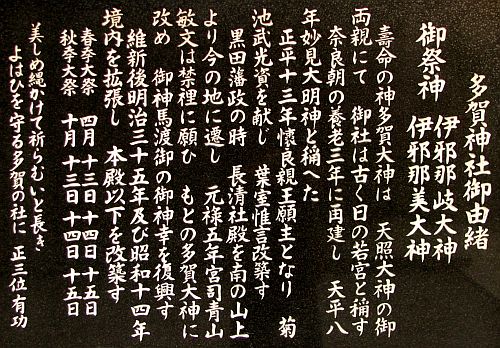 多賀神社御由緒
御祭神 伊邪那岐大神
伊邪那美大神
壽命の神多賀大神は 天照大神の御
両親にて 御社は古く日の若宮と稱す
奈良朝の養老三年に再建し 天平八
年妙見大明神と稱へた
正平十三年懐良親王願主となり 菊
池武光資を献し 葉室惟言改築す
黒田藩政の時 長清社殿を南の山上
より今の地に遷し 元禄五年宮司青山
敏文は禁裡に願ひ もとの多賀大神に
改め 御神馬渡御の御神幸を復興す
維新後明治三十五年及び昭和十四年
境内を拡張し 本殿以下を改築す
春季大祭 四月 十三日 十四日 十五日
秋季大祭 十月 十三日 十四日 十五日
美しめ縄かけて祈らむいと長き
よはひを守る多賀の社に 正三位 有功